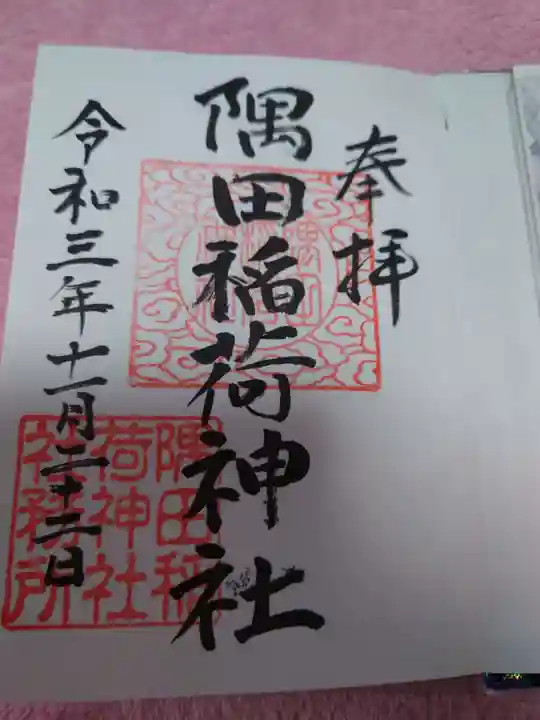 奉拝
隅田稲荷神社
令和三年十一月二十三日
隅田稲
荷神社
社務所